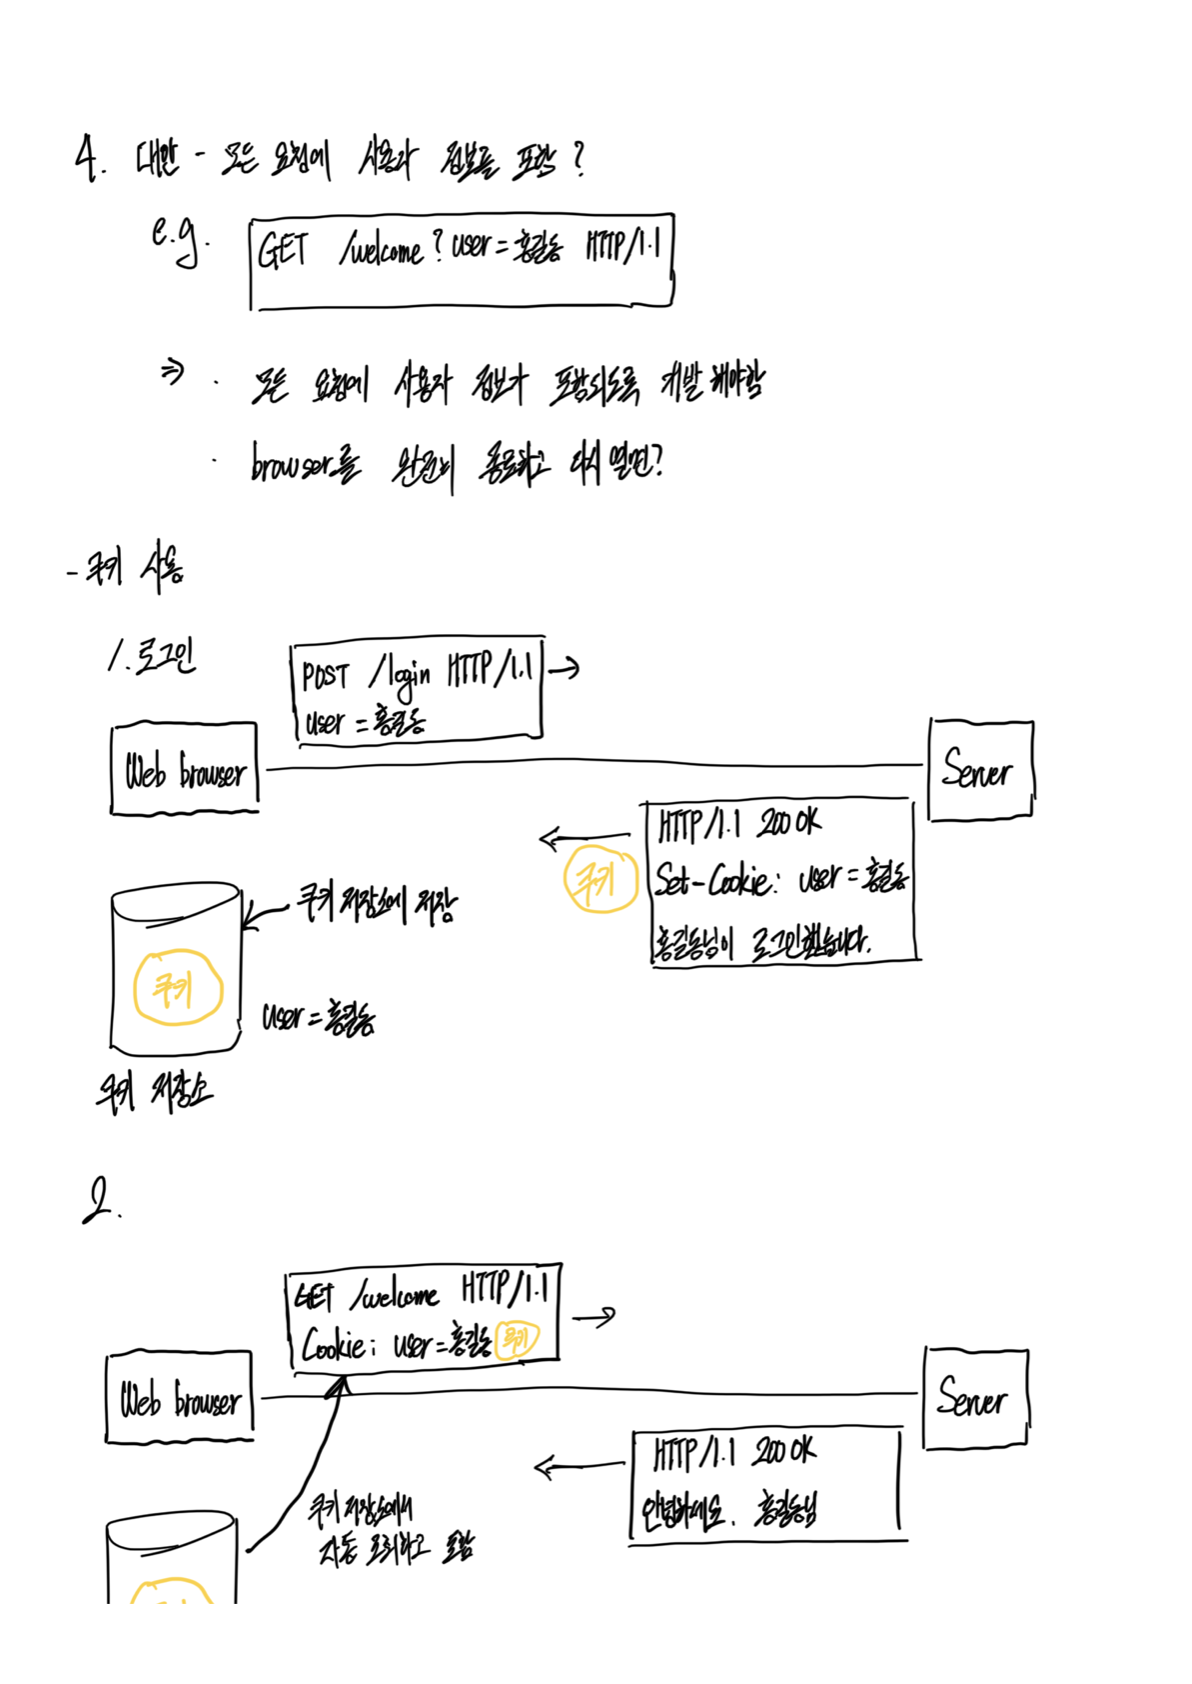 4. 대안 - 모든 요청에 사용자 정보를 포함?
e.g. GET /welcome?user=홍길동 HTTP/1.1
⇒ · 모든 요청에 사용자 정보가 포함되도록 개발해야함
· browser를 완전히 종료하고 다시 열면?
- 쿠키 사용
1. 로그인
POST /login HTTP/1.1 →
user=홍길동
Web browser
Server
HTTP/1.1 200 OK
Set-Cookie: user=홍길동
홍길동님이 로그인했습니다.
←
쿠키
쿠키 저장소에 저장
쿠키
user=홍길동
쿠키 저장소
2.
GET /welcome HTTP/1.1
Cookie: user=홍길동 쿠키
→
Web browser
Server
HTTP/1.1 200 OK
안녕하세요. 홍길동님
←
쿠키 저장소에서
자동 조회하고 포함